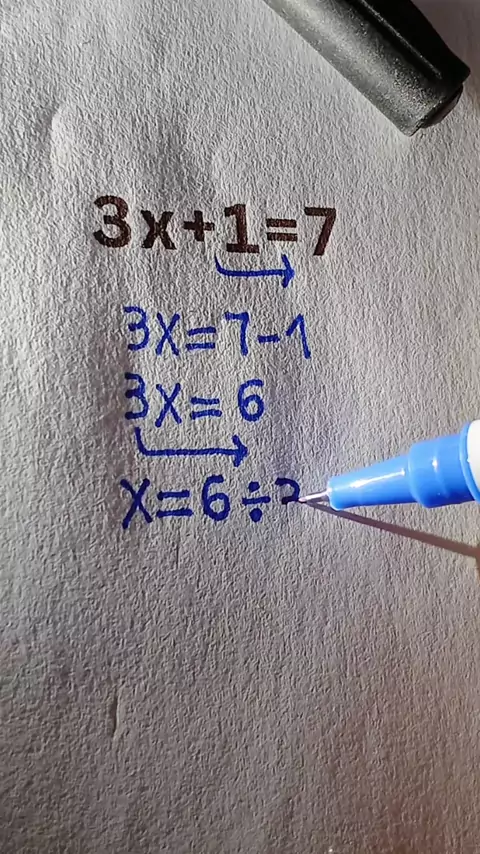 3x+1=7
3x=7-1
3x=6
x=6÷